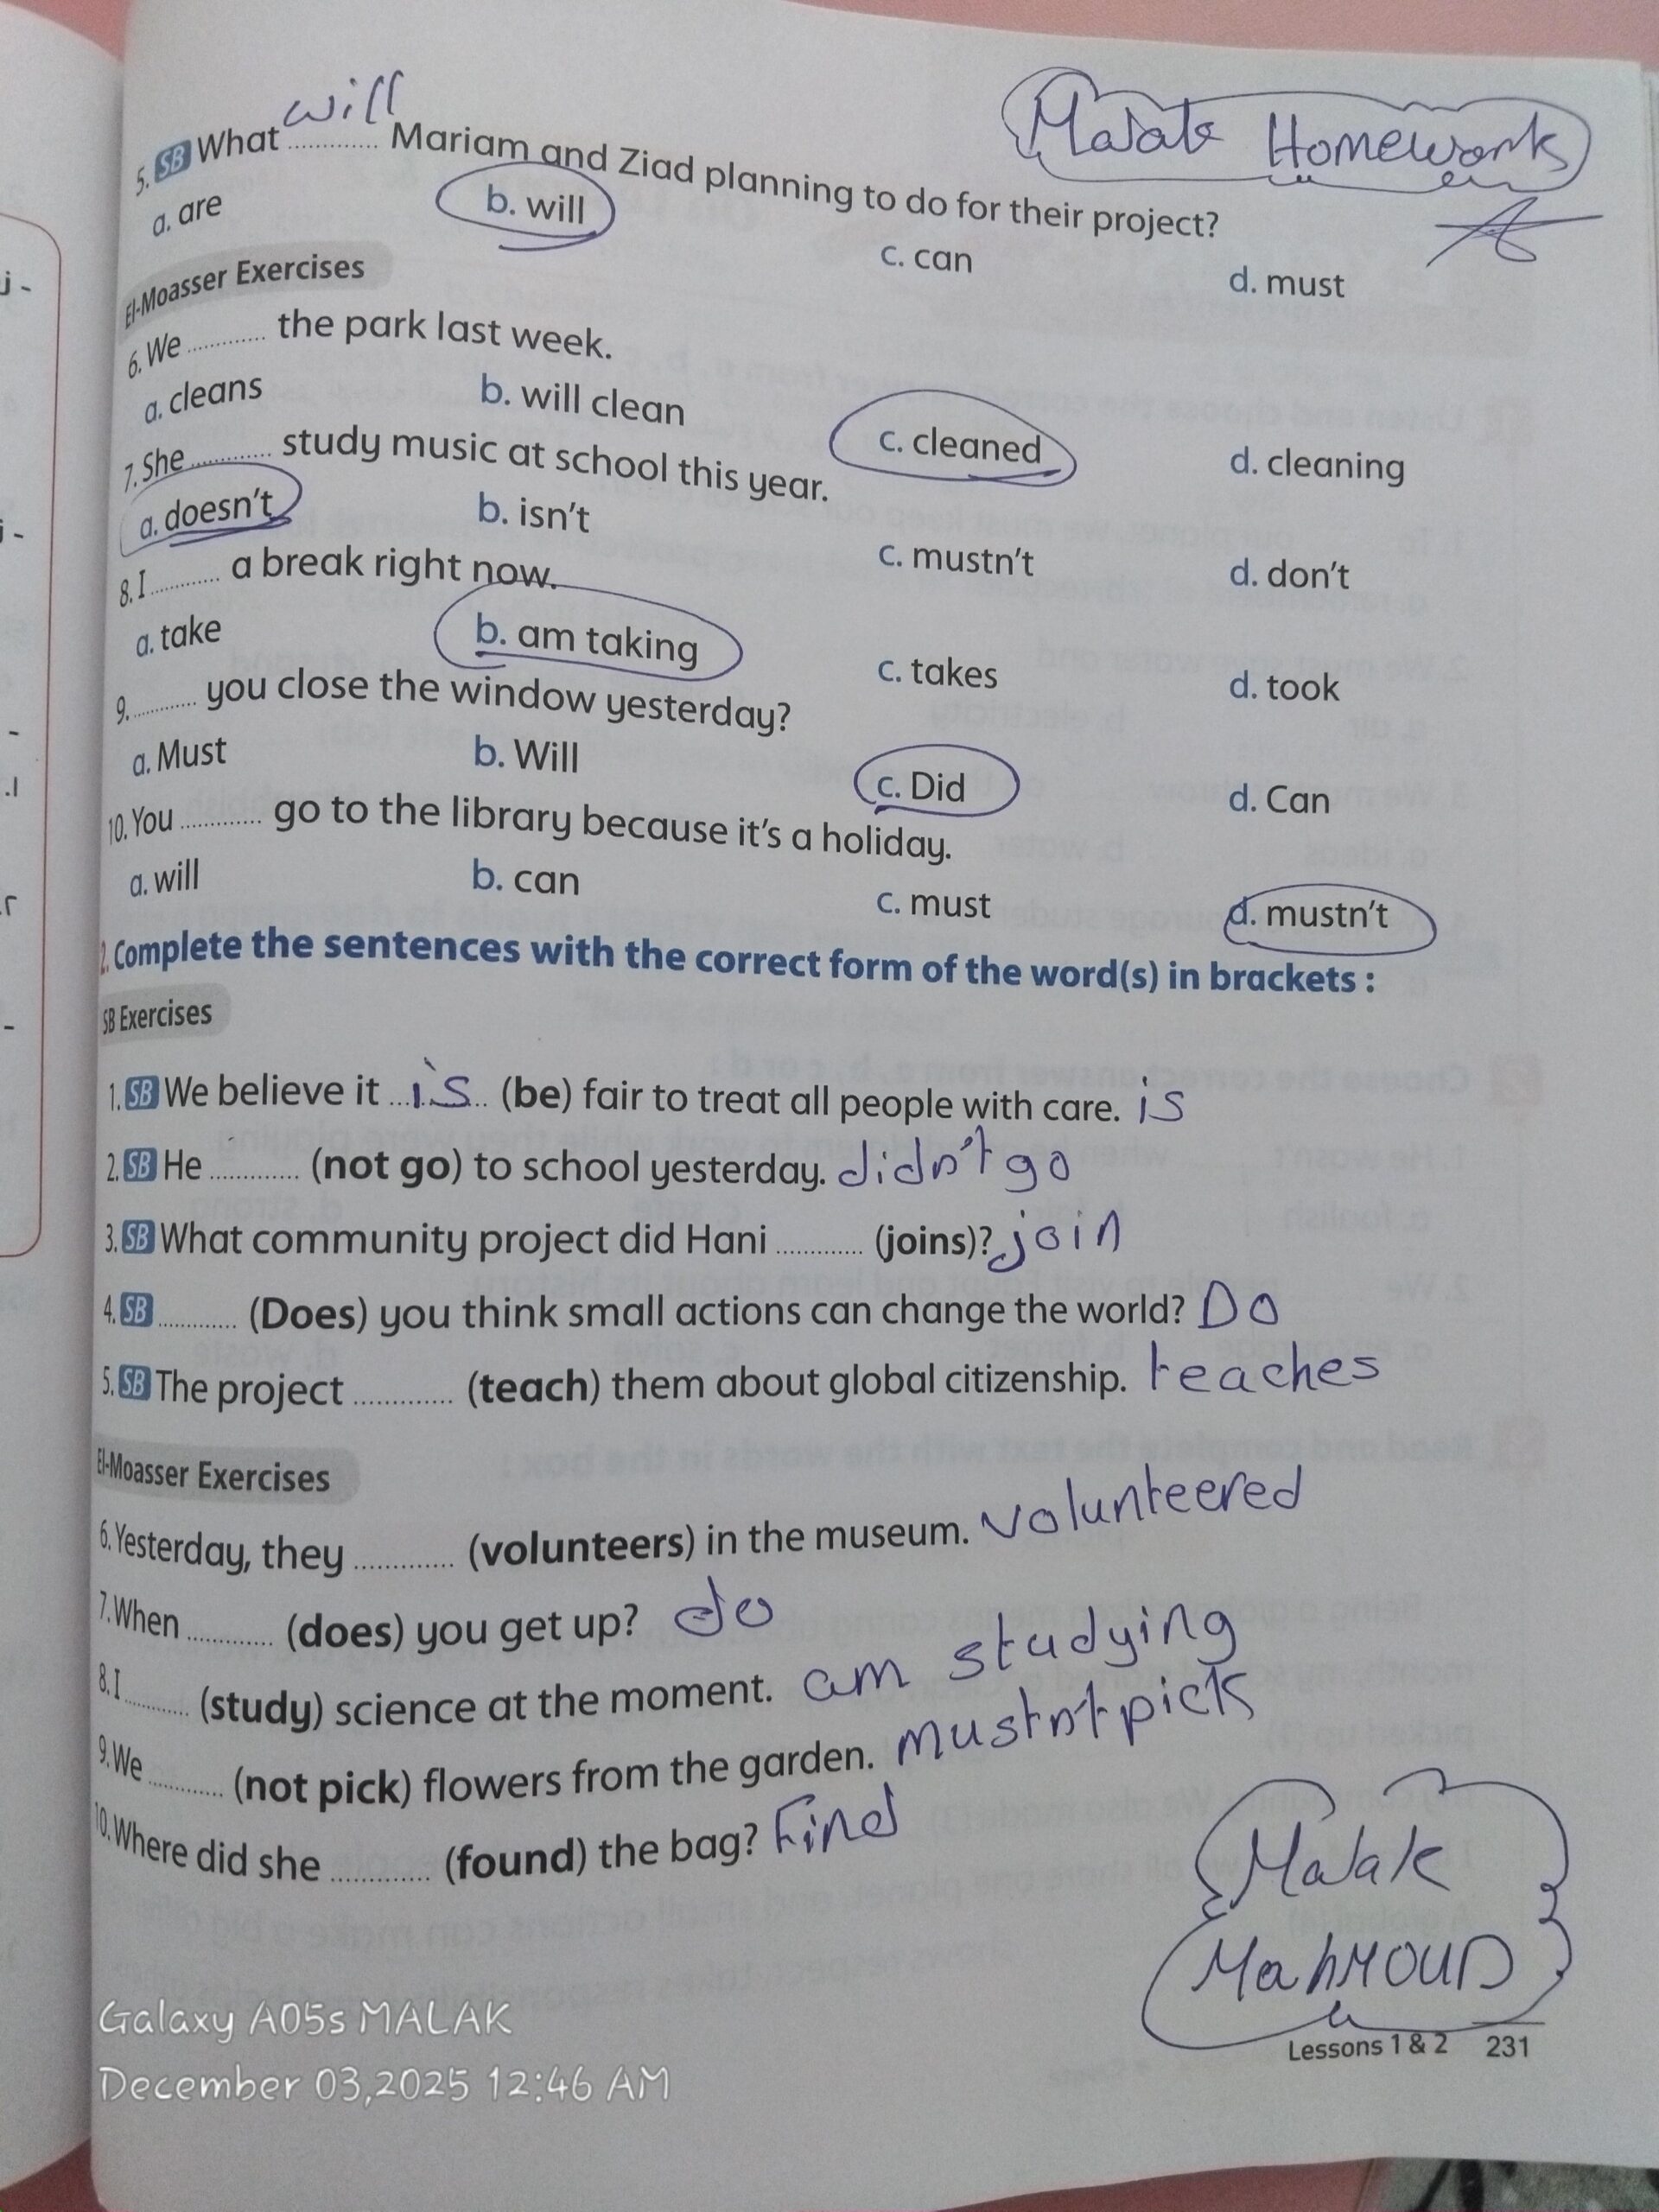 Malak Homework
will
5. SB What ............ Mariam and Ziad planning to do for their project?
a. are b. will c. can d. must
El-Moasser Exercises
6. We ............ the park last week.
a. cleans b. will clean c. cleaned d. cleaning
7. She ............ study music at school this year.
a. doesn't b. isn't c. mustn't d. don't
8. I ............ a break right now.
a. take b. am taking c. takes d. took
9. ............ you close the window yesterday?
a. Must b. Will c. Did d. Can
10. You ............ go to the library because it's a holiday.
a. will b. can c. must d. mustn't
2. Complete the sentences with the correct form of the word(s) in brackets :
SB Exercises
1. SB We believe it ... is ... (be) fair to treat all people with care. is
2. SB He ............ (not go) to school yesterday. didn't go
3. SB What community project did Hani ............ (joins)? join
4. SB ............ (Does) you think small actions can change the world? Do
5. SB The project ............ (teach) them about global citizenship. teaches
El-Moasser Exercises
6. Yesterday, they ............ (volunteers) in the museum. volunteered
7. When ............ (does) you get up? do
8. I ............ (study) science at the moment. am studying
9. We ............ (not pick) flowers from the garden. mustnt pick
10. Where did she ............ (found) the bag? Find
Malak
MahMOUD
Lessons 1 & 2 231
Galaxy A05s MALAK
December 03,2025 12:46 AM